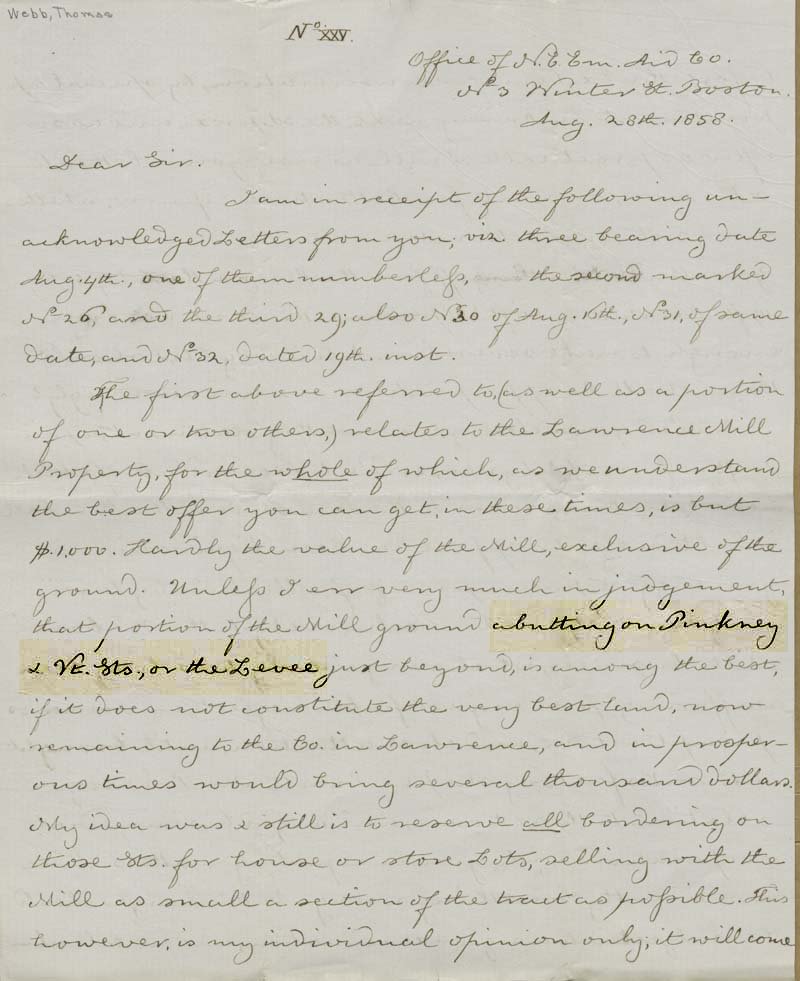 Webb, Thomas
No. XXV.
Office of N. E Em. Aid Co.
No 3 Winter St. Boston.
Aug. 28th. 1858.
Dear Sir.
I am in receipt of the following un-
acknowledged Letters from you; viz three bearing date
Aug. 4th., one of them numberless, the second marked
No 26, and the third 29; also No 30 of Aug. 16th., No 31, of same
date, and No 32, dated 19th. inst.
The first above referred to, (as well as a portion
of one or two others,) relates to the Lawrence Mill
Property, for the whole of which, as we understand
the best offer you can get, in these times, is but
$.1,000. Hardly the value of the Mill, exclusive of the
ground. Unless I err very much in judgement,
that portion of the Mill ground abutting on Pinkney
& Vt. Sts., or the Levee just beyond, is among the best,
if it does not constitute the very best land, now
remaining to the Co. in Lawrence, and in prosper-
ous times would bring several thousand dollars.
My idea was & still is to reserve all bordering on
those Sts. for house or store Lots, selling with the
Mill as small a section of the tract as possible. This
however, is my individual opinion only; it will come